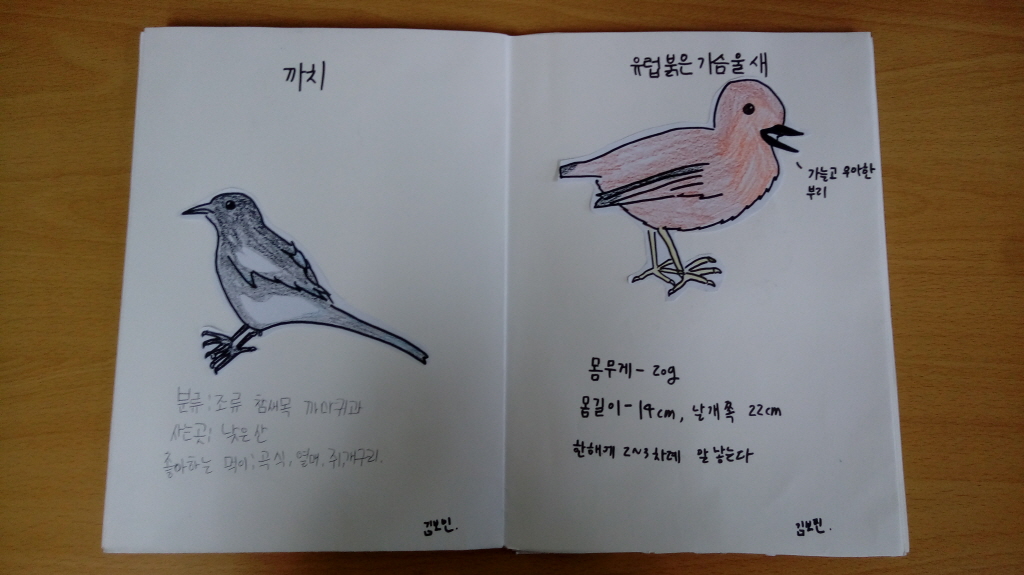 까치
분류: 조류 참새목 까마귀과
사는곳: 낮은산
좋아하는 먹이: 곡식, 열매, 쥐, 개구리.
김보민.
유럽붉은가슴울새
가늘고 우아한
부리
몸무게 - 20g
몸길이 - 14cm, 날개폭 22cm
한해에 2~3차례 알 낳는다
김보민.